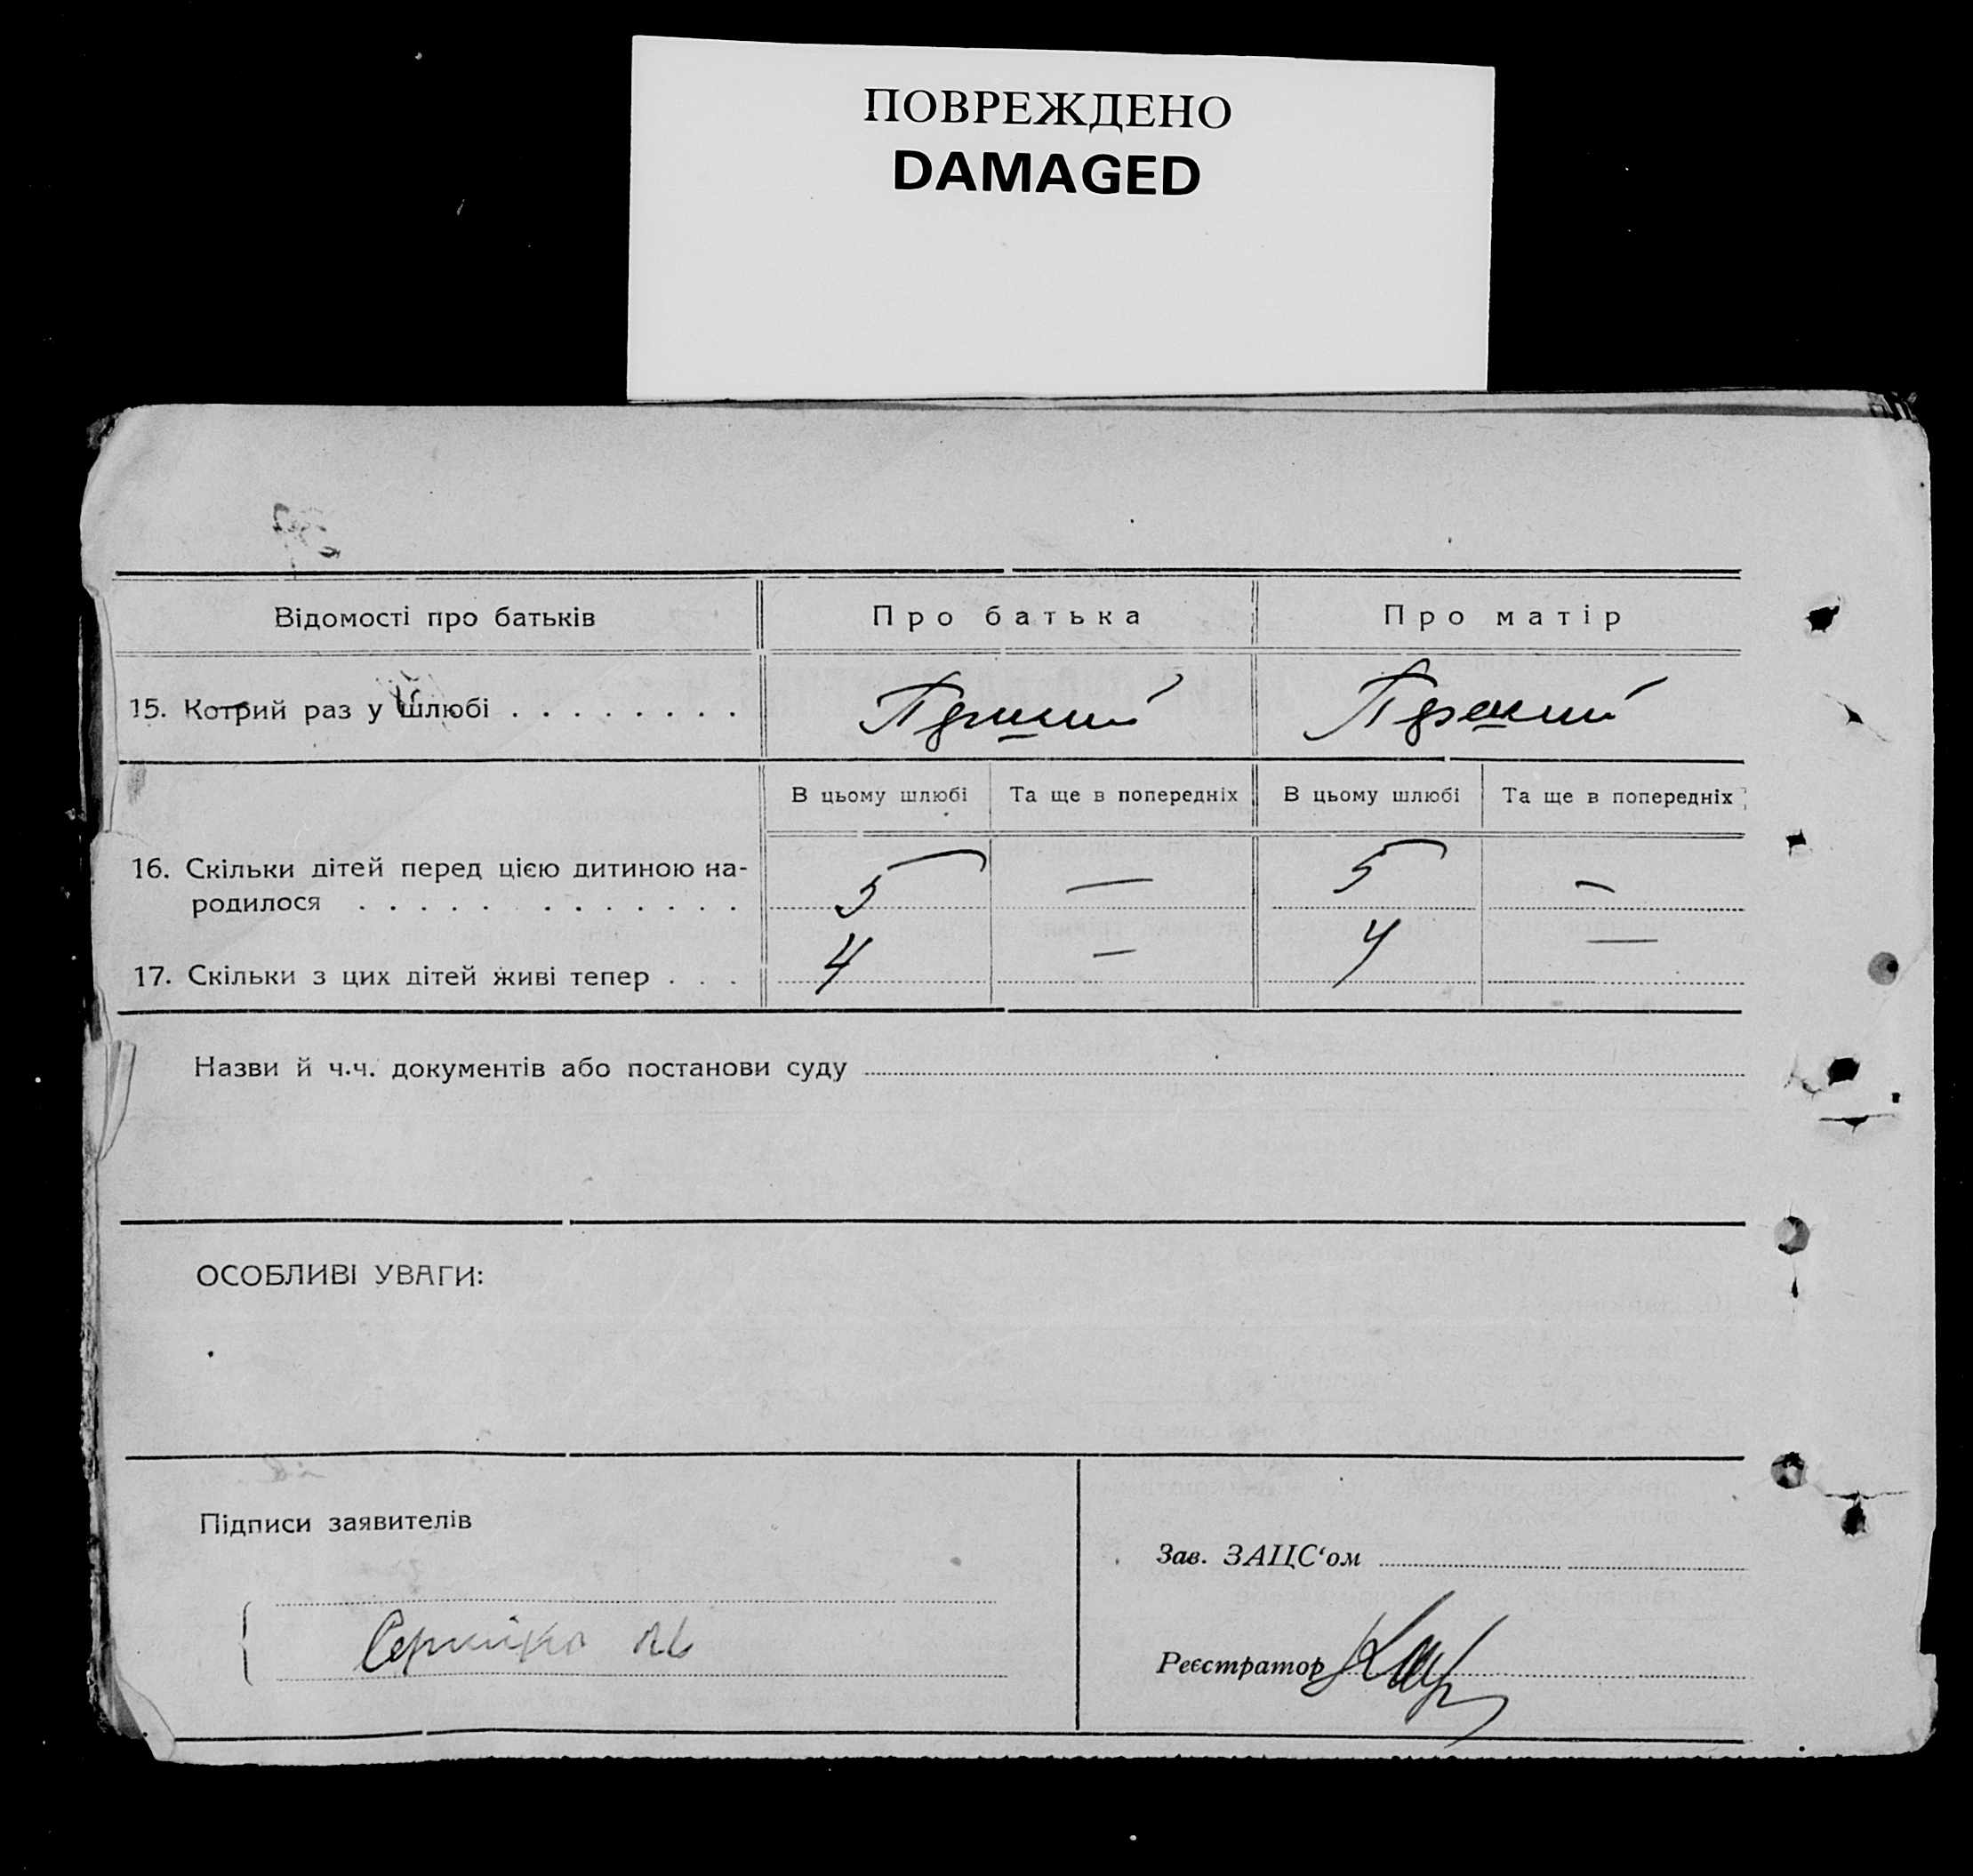 ПОВРЕЖДЕНО
DAMAGED
Відомості про батьків Про батька Про матір
15. Котрий раз у шлюбі . . . . . . . . Перший Перший
В цьому шлюбі Та ще в попередніх В цьому шлюбі Та ще в попередніх
16. Скільки дітей перед цією дитиною на-
родилося . . . . . . . . . . . . . 5 — 5 —
17. Скільки з цих дітей живі тепер . . . 4 — 4 —
Назви й ч.ч. документів або постанови суду
ОСОБЛИВІ УВАГИ:
Підписи заявителів
Зав. ЗАЦС‘ом
Реєстратор